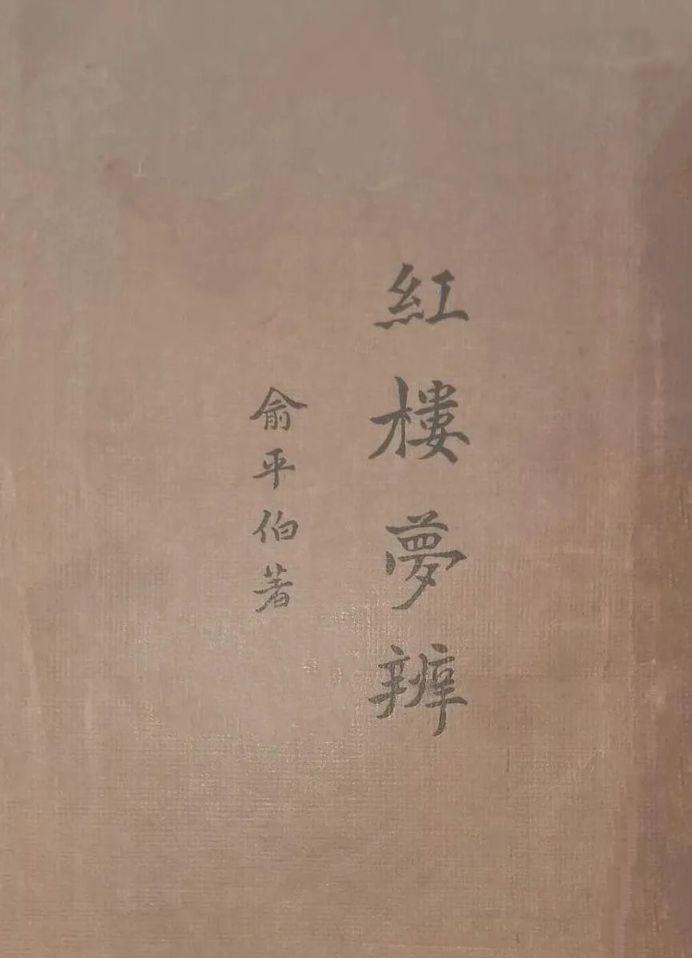 紅樓夢辨
俞平伯著